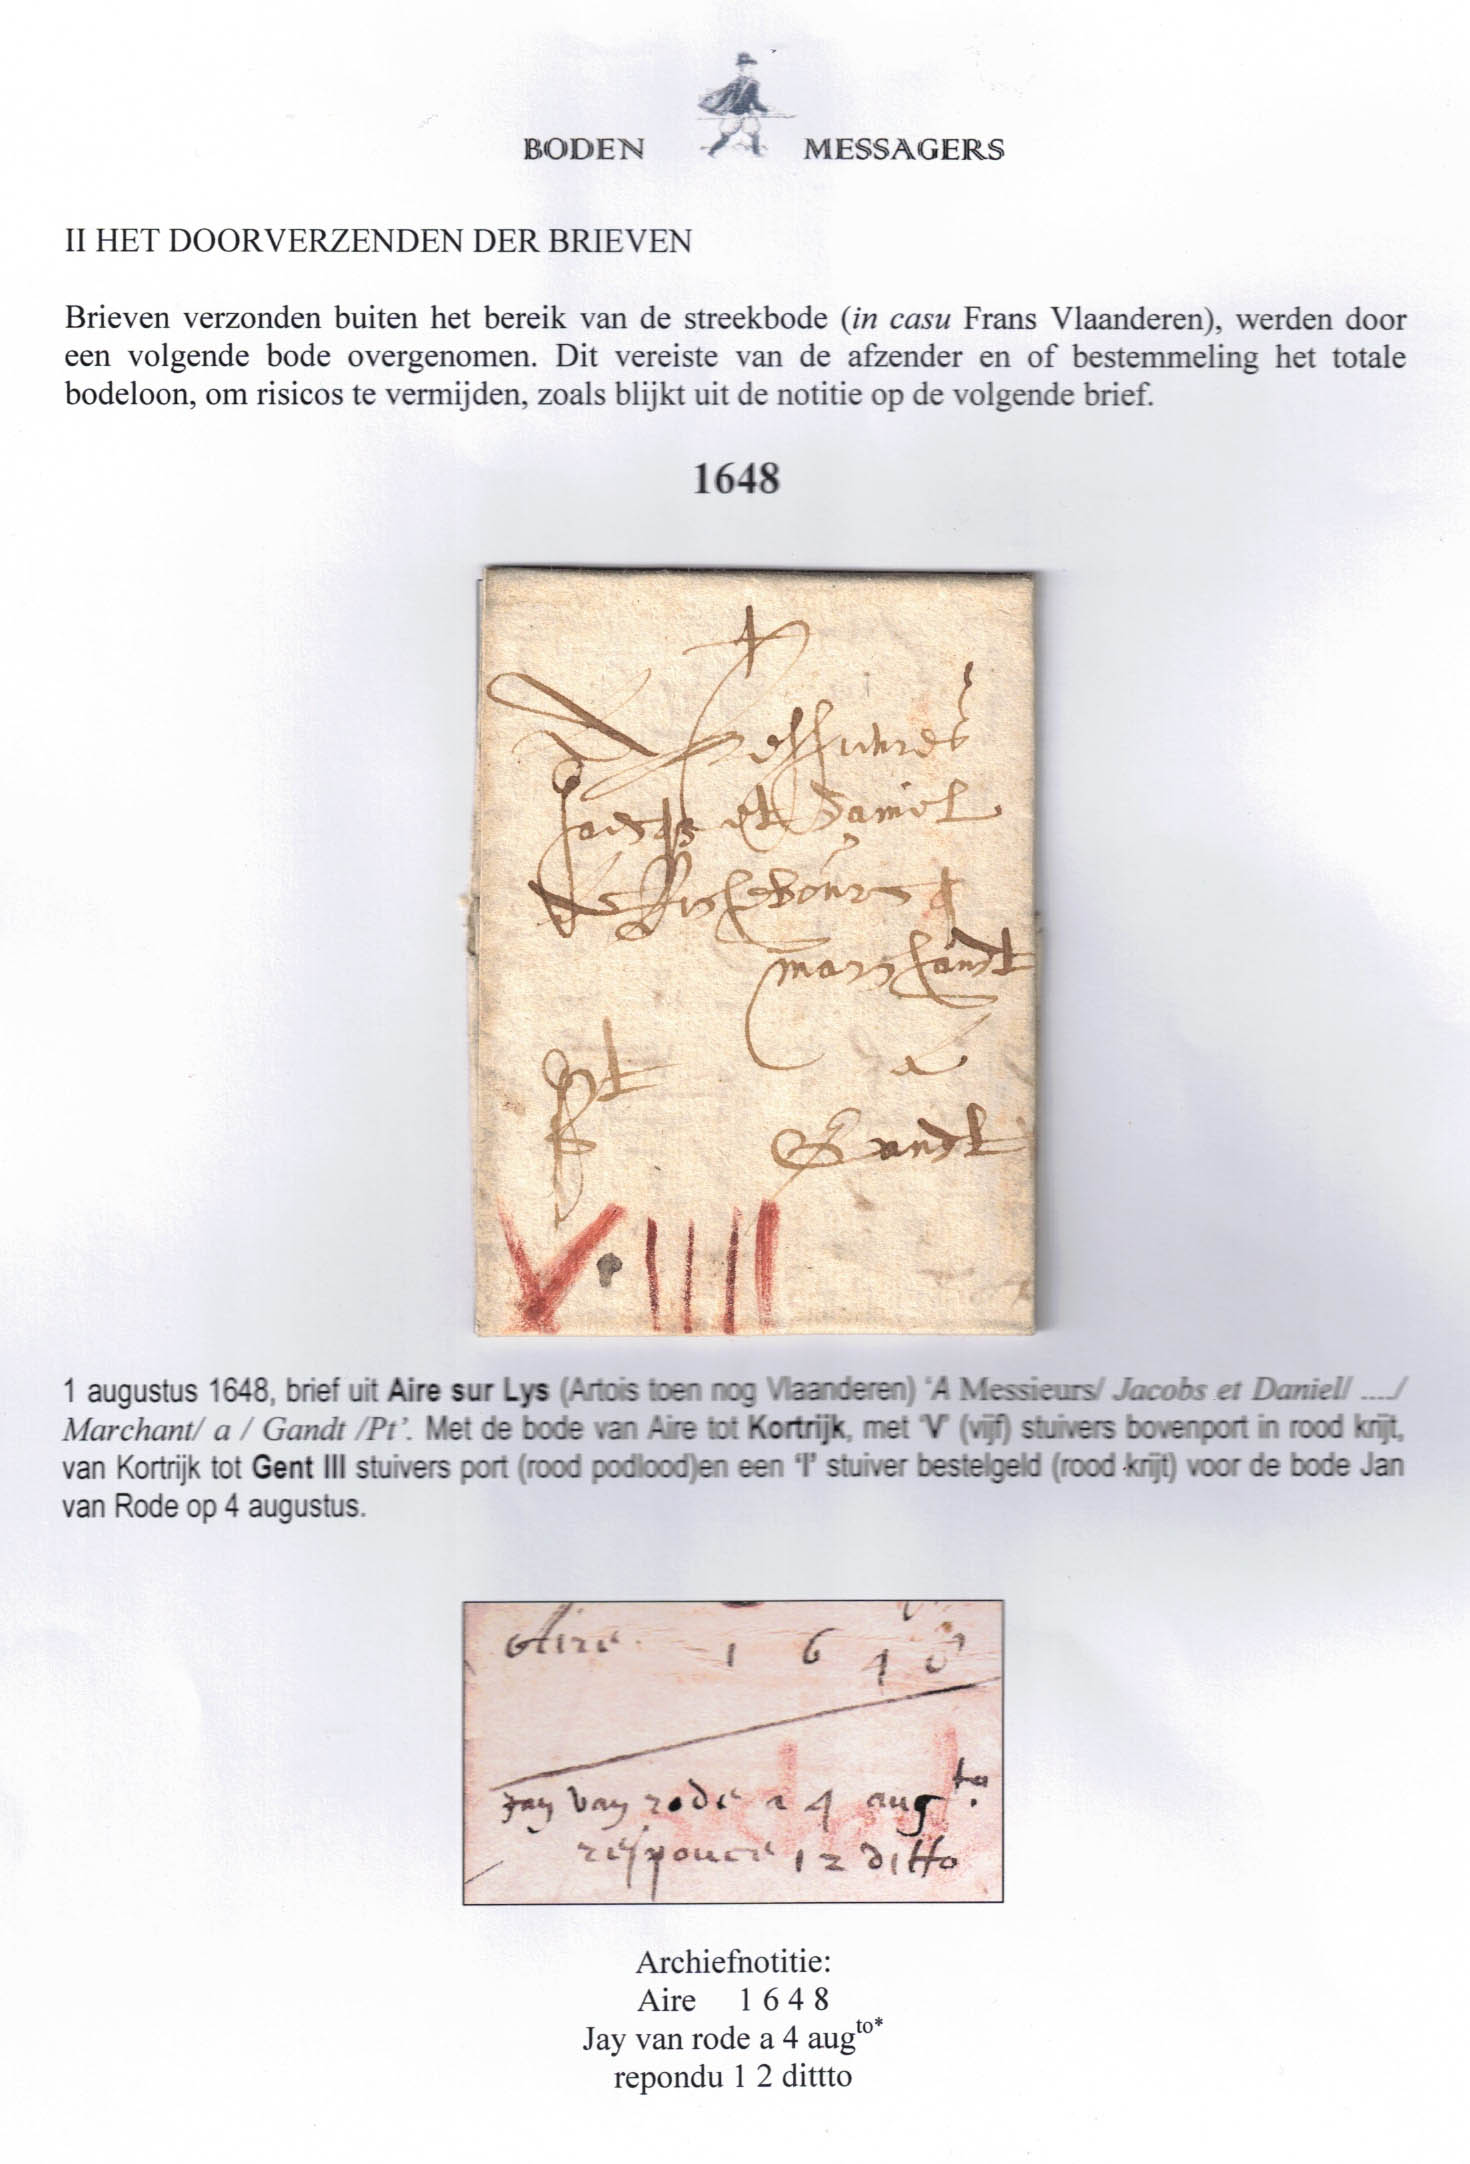 BODEN MESSAGERS
II HET DOORVERZENDEN DER BRIEVEN
Brieven verzonden buiten het bereik van de streekbode (in casu Frans Vlaanderen), werden door
een volgende bode overgenomen. Dit vereiste van de afzender en of bestemmeling het totale
bodeloon, om risicos te vermijden, zoals blijkt uit de notitie op de volgende brief.
1648
et Daniel
marchandt
a
Gandt
V IIII
1 augustus 1648, brief uit Aire sur Lys (Artois toen nog Vlaanderen) ‘A Messieurs/ Jacobs et Daniel/ ..../
Marchant/ a / Gandt /Pt’. Met de bode van Aire tot Kortrijk, met ‘V’ (vijf) stuivers bovenport in rood krijt,
van Kortrijk tot Gent III stuivers port (rood podlood)en een ‘I’ stuiver bestelgeld (rood krijt) voor de bode Jan
van Rode op 4 augustus.
Aire 1 6 4 8
Jay van rode a 4 aug to
responce 12 ditto
Archiefnotitie:
Aire 1 6 4 8
Jay van rode a 4 aug to*
repondu 1 2 dittto